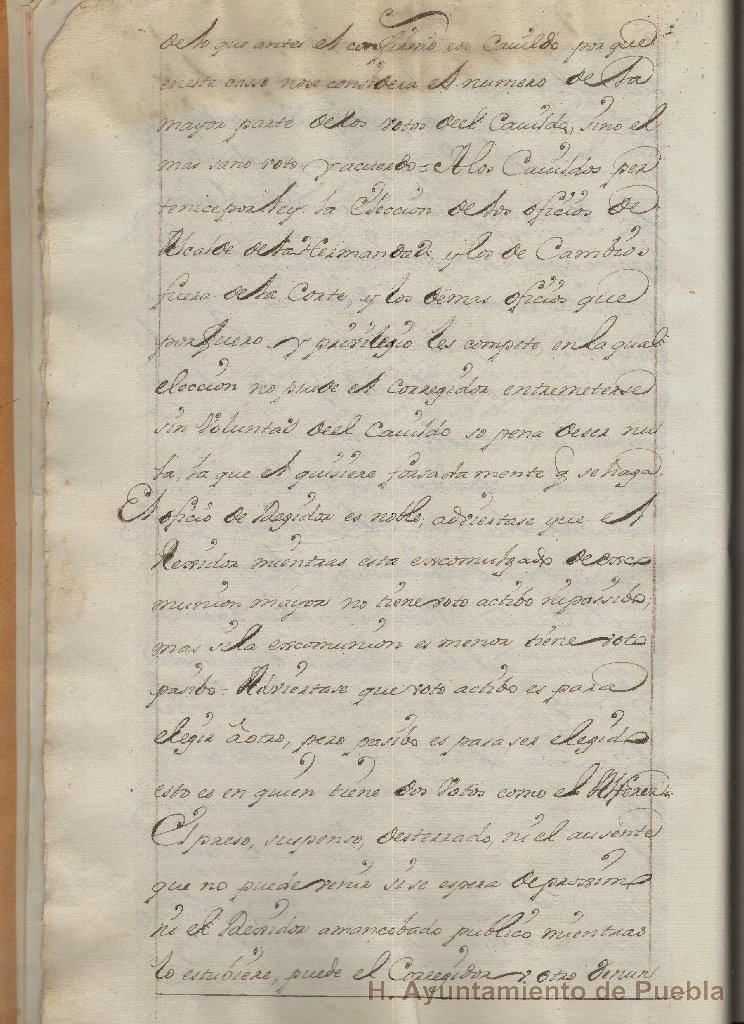 de lo que antes el confirmo ese Cauildo porque
en este casso no se considera el numero de la
mayor parte de los votos deel Cauildo, sino el
mas sano voto y acuerdo = A los Cauildos per
tenice por ley la Eleccion de los oficios de
Alcalde de la Hermandad, y los de Cambios
fuera de la Corte, y los demas oficios que
por fuero y priuilegio les compete, en la qual
eleccion no puede el Corregidor entremeterse
sin Voluntad deel Cauildo so pena de ser nu
la, la que el quisiere forsadamente q se haga
El oficio de Regidor es noble, adviertase que el
Rexidor mientras esta excomulgado de exco
munion mayor no tiene voto actibo ni passibo,
mas si la excomunion es menor tiene voto
pasibo = Adviertase que voto actibo es para
elegir à otro, pero pasibo es para ser elegido
esto es en quien tiene dos Votos como el Alferez
El preso, suspenso, desterrado, ni el ausente
que no puede venir si se espera de proximo
ni el Rexidor amancebado publico mientras
lo estubiere, puede el Corregidor v otro denun
H. Ayuntamiento de Puebla